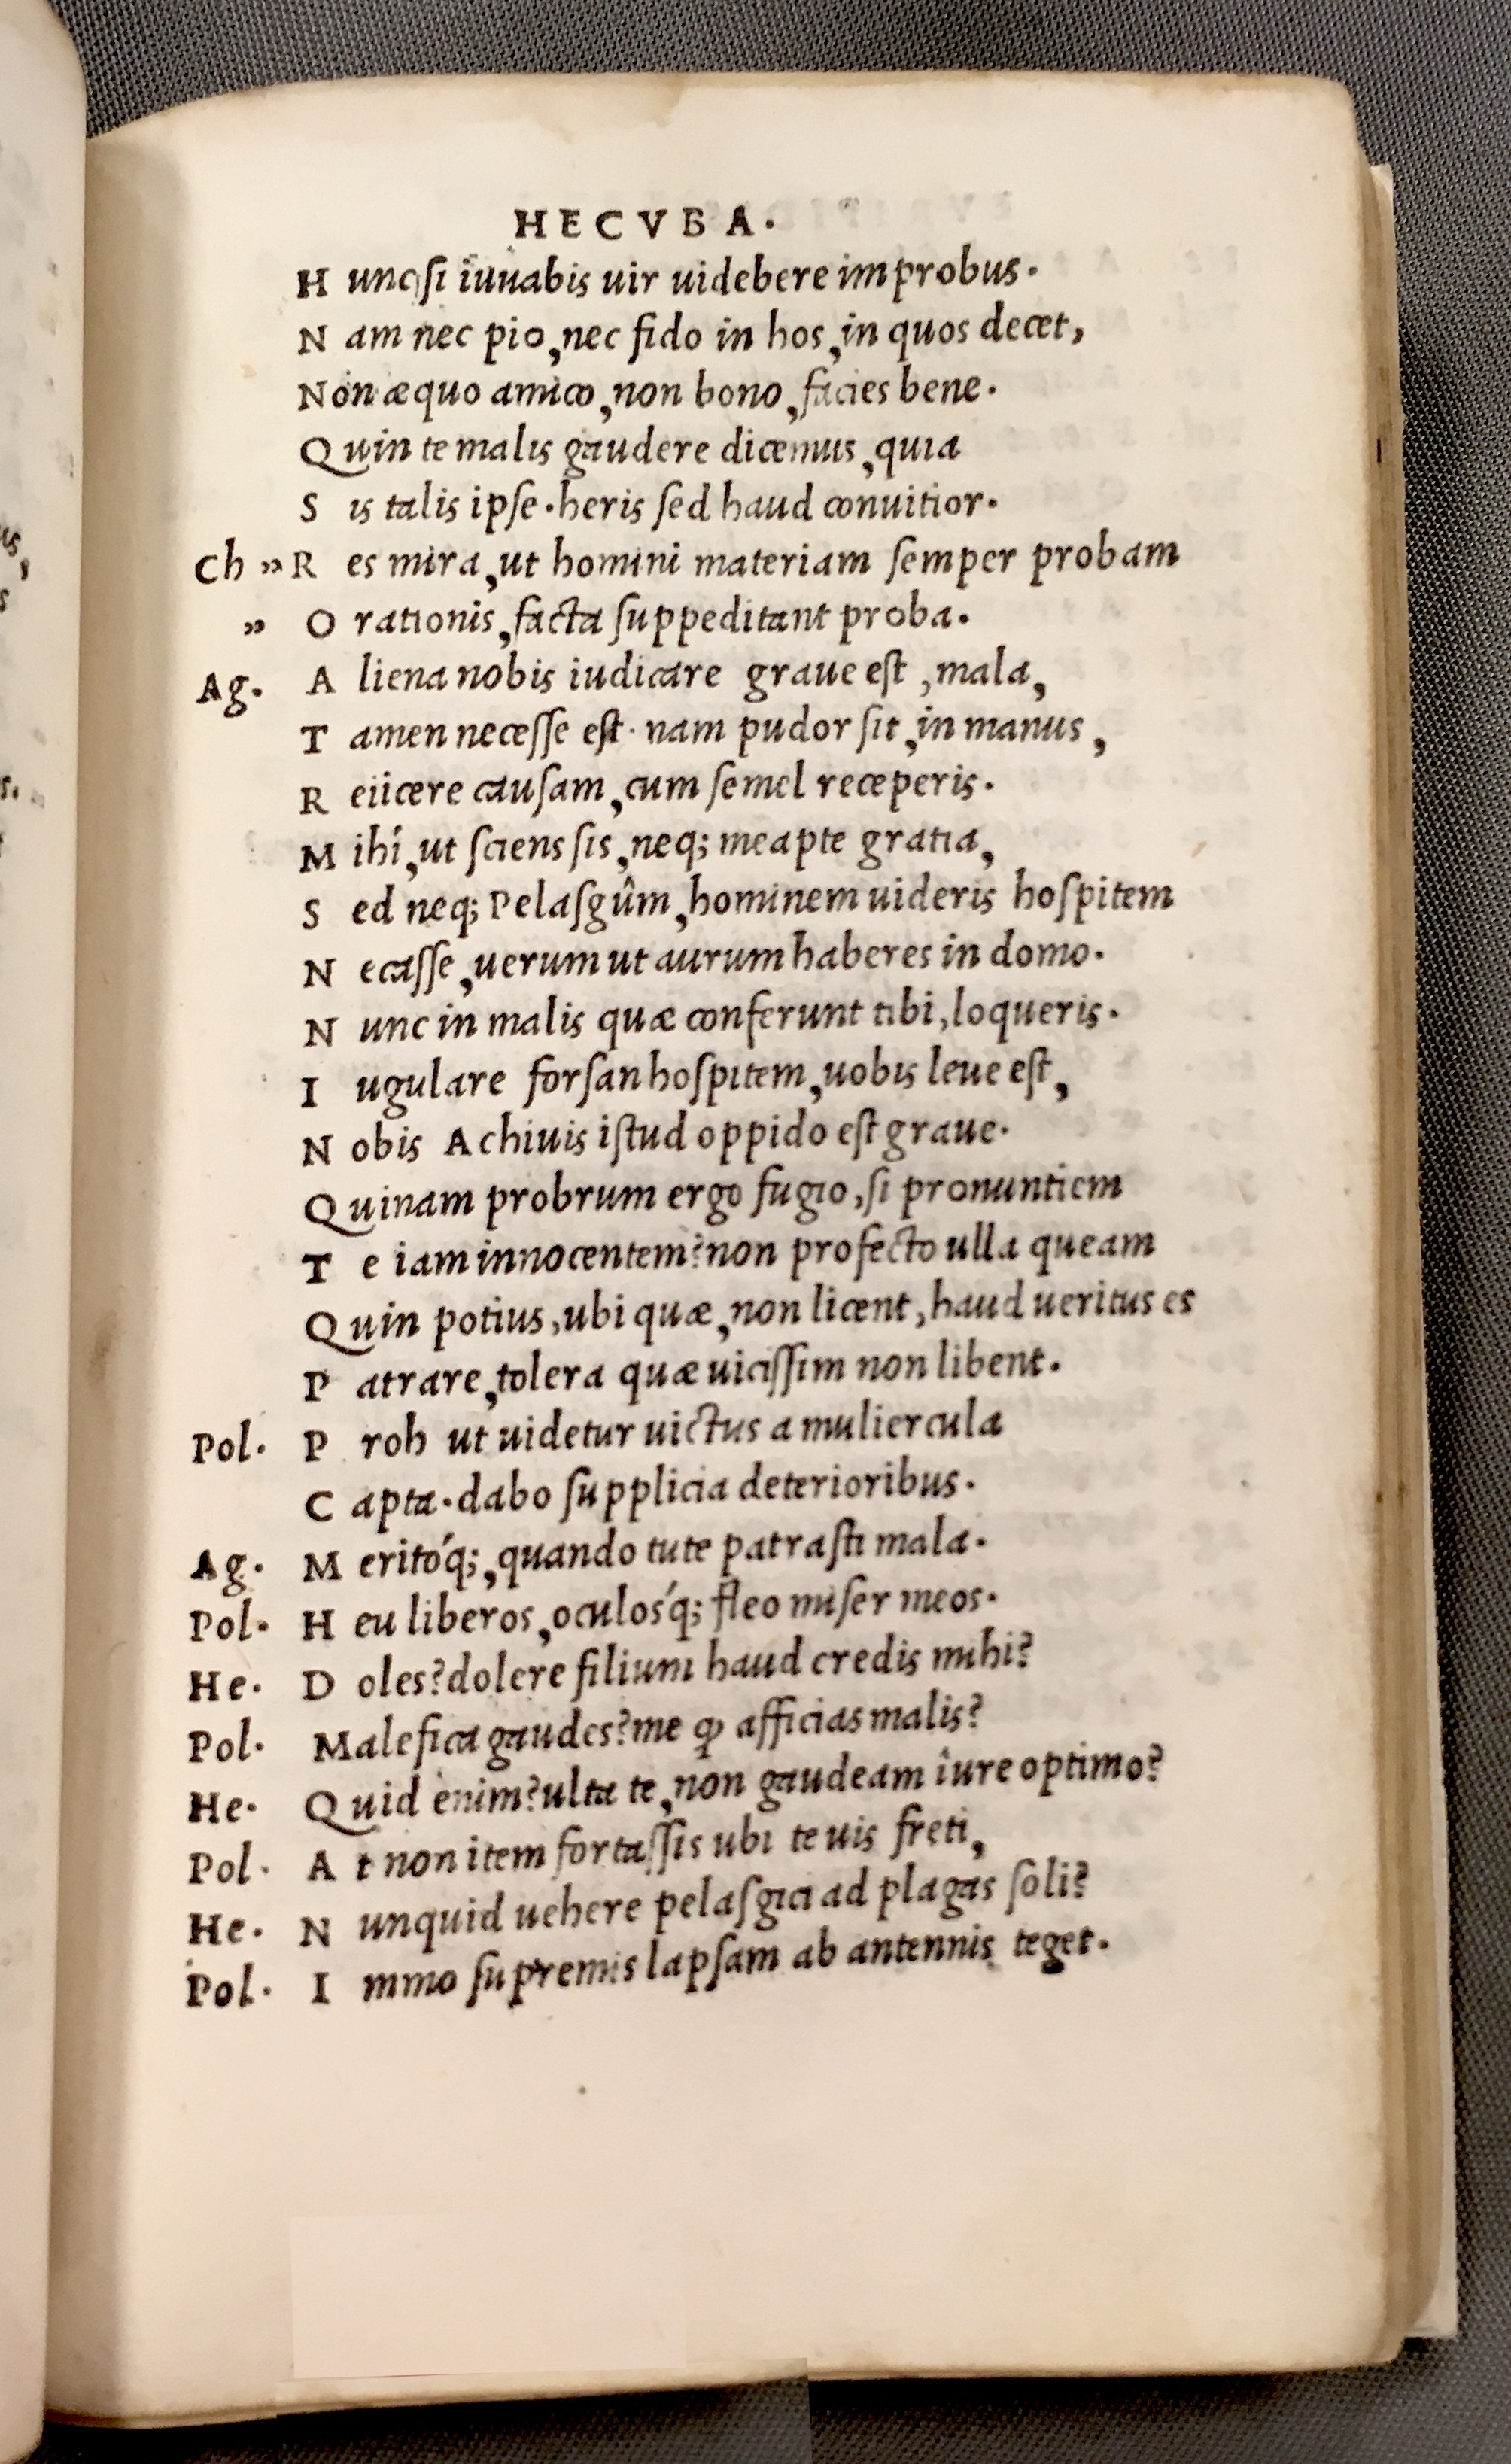 HECVBA.
Hunc si iuuabis uir uidebere improbus.
Nam nec pio, nec fido in hos, in quos decet,
Non æquo amico, non bono, facies bene.
Quin te malis gaudere dicemus, quia
Sis talis ipse. heris sed haud conuitior.
Ch » Res mira, ut homini materiam semper probam
» Orationis, facta suppeditant proba.
Ag. Aliena nobis iudicare graue est, mala,
Tamen necesse est. nam pudor sit, in manus,
Reiicere causam, cum semel receperis.
Mihi, ut sciens sis, neq; meapte gratia,
Sed neq; Pelasgûm, hominem uideris hospitem
Necasse, uerum ut aurum haberes in domo.
Nunc in malis quæ conferunt tibi, loqueris.
Iugulare forsan hospitem, uobis leue est,
Nobis Achiuis istud oppido est graue.
Quinam probrum ergo fugio, si pronuntiem
Te iam innocentem? non profecto ulla queam
Quin potius, ubi quæ, non licent, haud ueritus es
Patrare, tolera quæ uicissim non libent.
Pol. Proh ut uidetur uictus a muliercula
Capta. dabo supplicia deterioribus.
Ag. Meritóq;, quando tute patrasti mala.
Pol. Heu liberos, oculosq́; fleo miser meos.
He. Doles? dolere filium haud credis mihi?
Pol. Malefica gaudes? me ꝙ afficias malis?
He. Quid enim? ulta te, non gaudeam iure optimo?
Pol. At non item fortassis ubi te uis freti,
He. Nunquid uehere pelasgici ad plagas soli?
Pol. Immo supremis lapsam ab antennis teget.